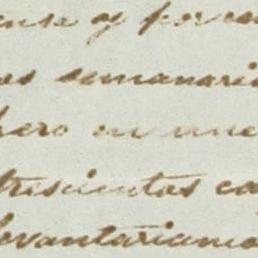 y por ca
os semanari
pero en une
trescientos ca
levantariamo